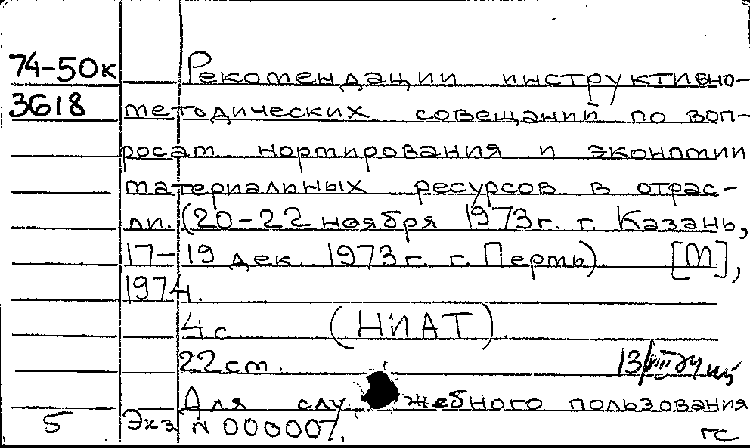 74-50к Рекомендации инструктивно-
3618 методических совещаний по воп-
росам нормирования и экономии
материальных ресурсов в отрас-
ли. (20-22 ноября 1973г. г. Казань,
17-19 дек. 1973г. г. Пермь) [М],
1974.
4 с. (НИАТ)
22 см. 13/VIII 74
Для служебного пользования
5 Экз N 000007.
гс